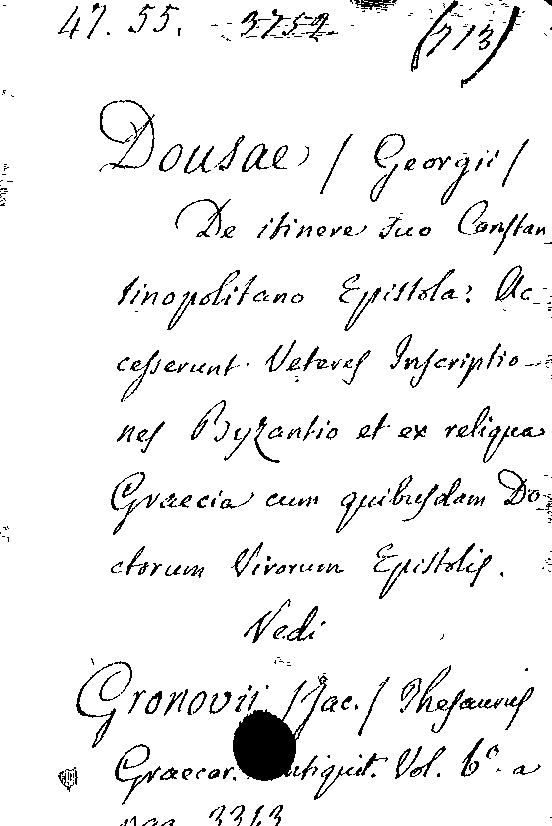 47. 55. 3752. (713)
Dousae / Georgii /
De itinere suo Constan
tinopolitano Epistola: Ac
cesserunt Veteres Inscriptio-
nes Byzantio et ex reliqua
Graecia cum quibusdam Do-
ctorum Virorum Epistolis.
Vedi
Gronovii /Jac./ Thesaurus
Graecar. ntiquit. Vol. 6º a
pag. 3343